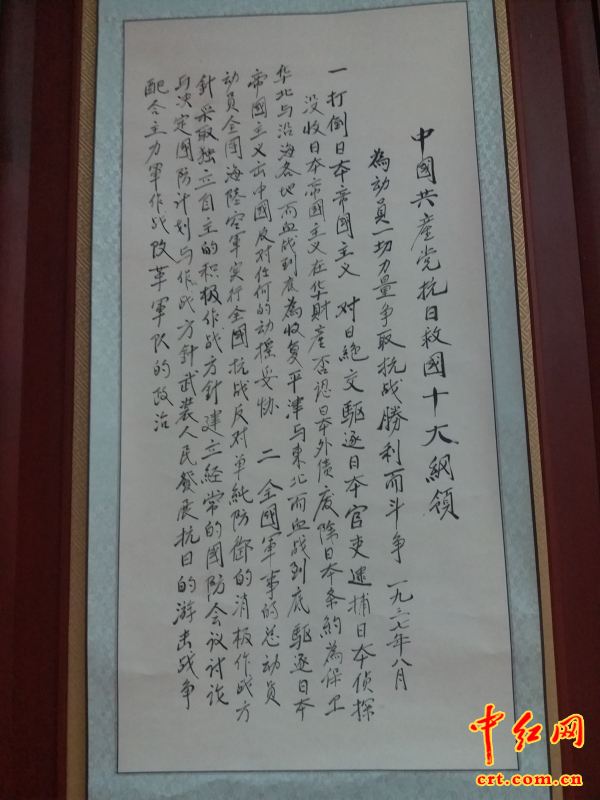 中國共產党抗日救國十大綱領
為动員一切力量争取抗战勝利而斗争 一九三七年八月
一 打倒日本帝國主义 对日絕交驅逐日本官吏逮捕日本侦探
没收日本帝國主义在华財產否認日本外债废除日本条約為保卫
华北与沿海各地而血战到底為收复平津与東北而血战到底驅逐日本
帝國主义出中國反对任何的动摇妥协 二 全國軍事的总动員
动員全國海陸空軍实行全國抗战反对单純防御的消极作战方
針采取独立自主的积极作战方針建立經常的國防会议讨论
与决定國防计划与作战方針武装人民發展抗日的游击战争
配合主力軍作战改革軍队的政治
中红网
crt.com.cn